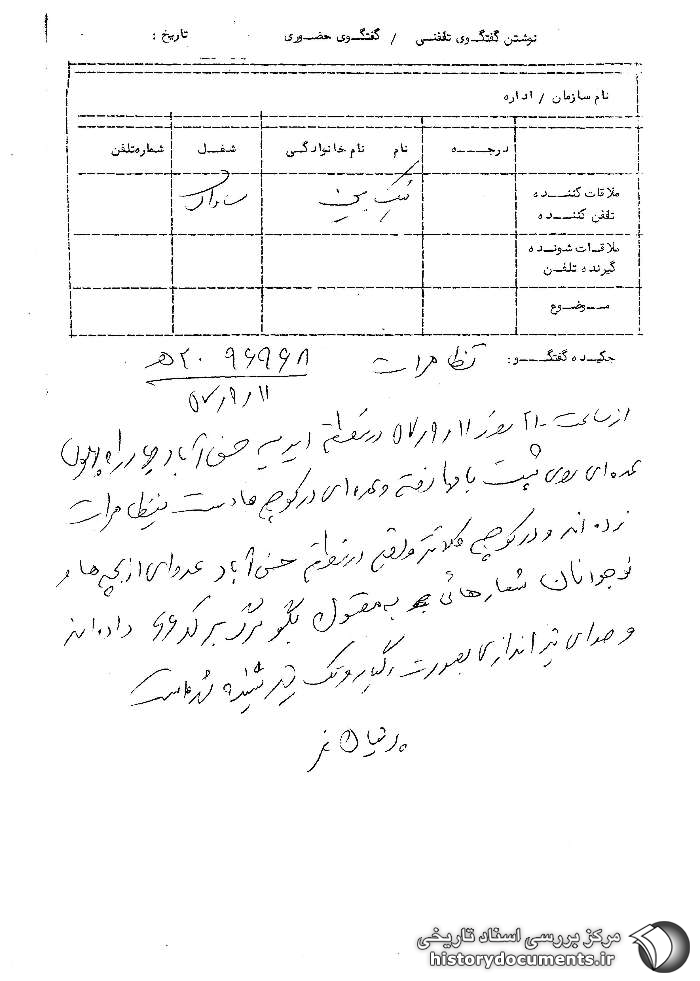 نوشتن گفتگوی تلفنی / گفتگوی حضوری تاریخ :
نام سازمان / اداره
درجه نام نام خانوادگی شغل شماره تلفن
ملاقات کننده نیک بین ساواک
تلفن کننده
ملاقات شونده
گیرنده تلفن
موضوع
چکیده گفتگو: تظاهرات ۲۰۹۶۹۶۸ ه
۵۷/۹/۱۱
از ساعت ۲۱۰۰ روز ۵۷/۹/۱۱ در منطقه حسن آباد چهار راه پهلوی
عده ای روی پشت بامها رفته و عده ای در کوچه ها دست بتظاهرات
زده اند و در کوچه واقع در منطقه حسن آباد عده ای از بچه ها و
نوجوانان شعارهائی به بگو مرگ بر داده اند
و صدای تیراندازی بصورت رگبار و تک تیر شنیده شده است
مرکز بررسی اسناد تاریخی
historydocuments.ir